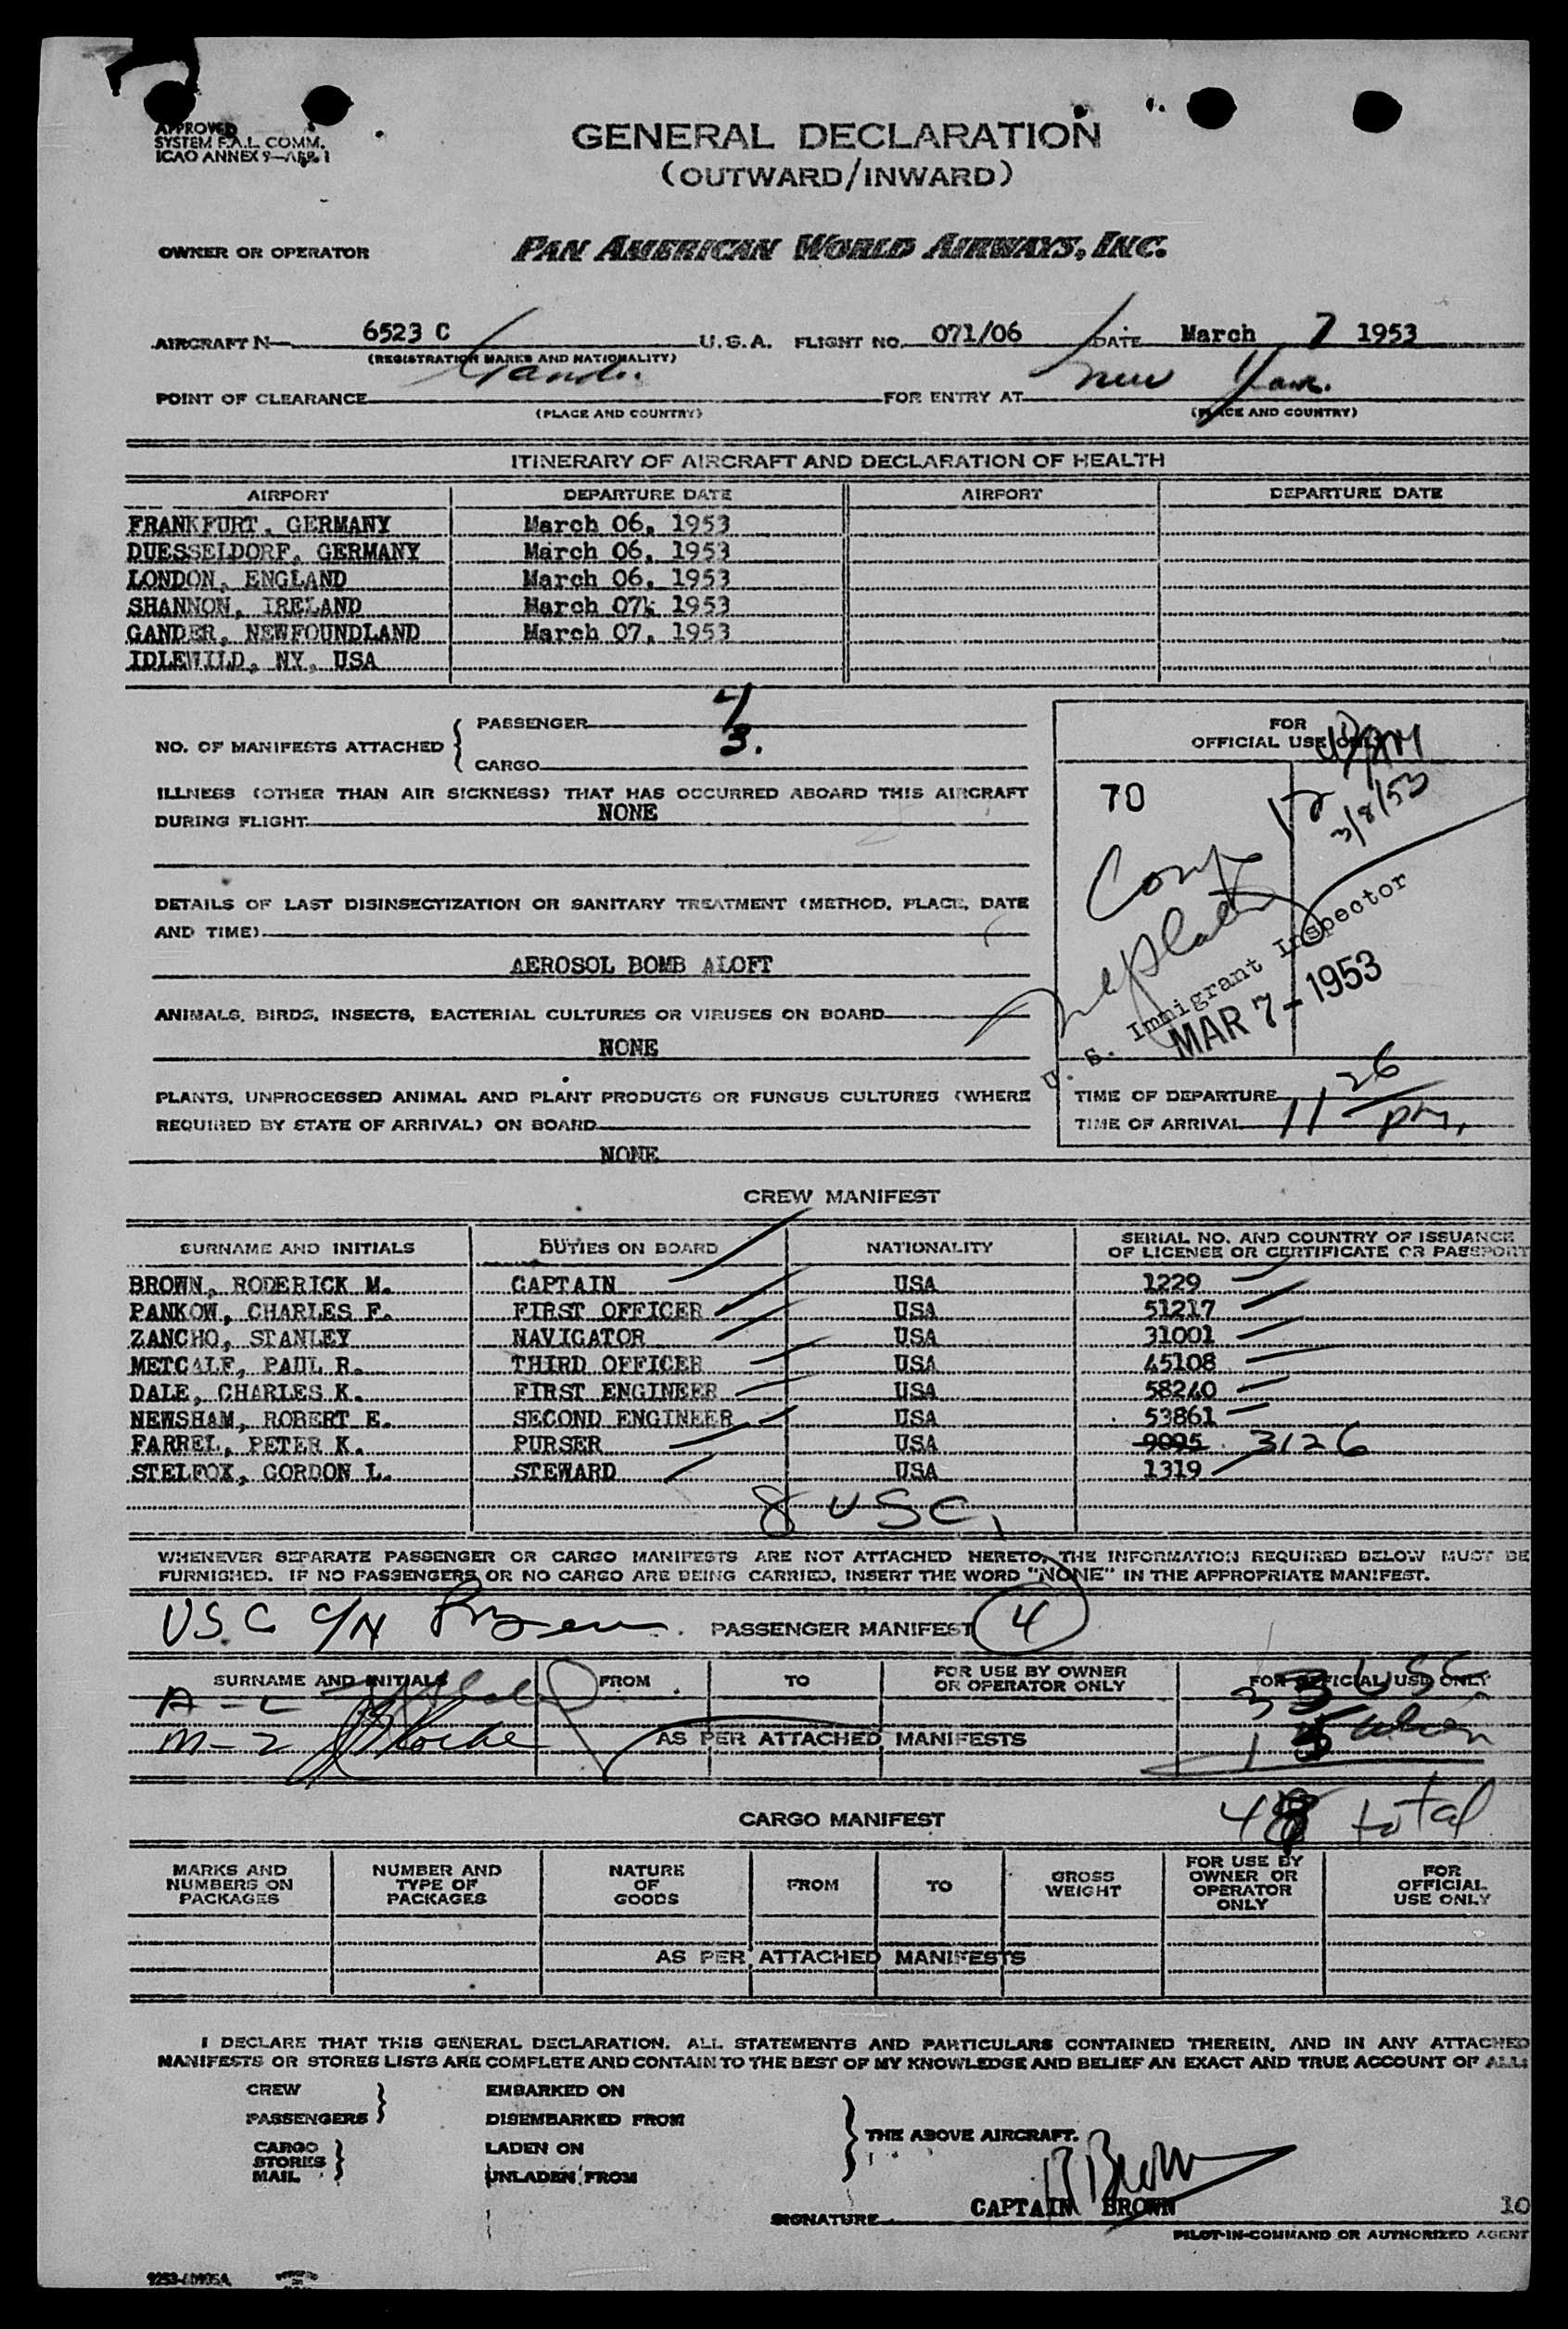 APPROVED
SYSTEM F.A.L. COMM.
ICAO ANNEX 9—APP. 1
GENERAL DECLARATION
(OUTWARD/INWARD)
OWNER OR OPERATOR PAN AMERICAN WORLD AIRWAYS, INC.
AIRCRAFT N 6523 C U.S.A. FLIGHT NO. 071/06 DATE March 7 1953
(REGISTRATION MARKS AND NATIONALITY)
POINT OF CLEARANCE Gander FOR ENTRY AT New York
(PLACE AND COUNTRY) (PLACE AND COUNTRY)
ITINERARY OF AIRCRAFT AND DECLARATION OF HEALTH
AIRPORT DEPARTURE DATE AIRPORT DEPARTURE DATE
FRANKFURT, GERMANY March 06, 1953
DUESSELDORF, GERMANY March 06, 1953
LONDON, ENGLAND March 06, 1953
SHANNON, IRELAND March 07, 1953
GANDER, NEWFOUNDLAND March 07, 1953
IDLEWILD, NY, USA
NO. OF MANIFESTS ATTACHED { PASSENGER 4
CARGO 3.
ILLNESS (OTHER THAN AIR SICKNESS) THAT HAS OCCURRED ABOARD THIS AIRCRAFT
DURING FLIGHT NONE
DETAILS OF LAST DISINSECTIZATION OR SANITARY TREATMENT (METHOD, PLACE, DATE
AND TIME)
AEROSOL BOMB ALOFT
ANIMALS, BIRDS, INSECTS, BACTERIAL CULTURES OR VIRUSES ON BOARD
NONE
PLANTS, UNPROCESSED ANIMAL AND PLANT PRODUCTS OR FUNGUS CULTURES (WHERE
REQUIRED BY STATE OF ARRIVAL) ON BOARD
NONE
FOR
OFFICIAL USE ONLY
70
3/8/53
U. S. Immigrant Inspector
MAR 7 - 1953
TIME OF DEPARTURE
TIME OF ARRIVAL 11 26 pm.
CREW MANIFEST
SURNAME AND INITIALS DUTIES ON BOARD NATIONALITY SERIAL NO. AND COUNTRY OF ISSUANCE
OF LICENSE OR CERTIFICATE OR PASSPORT
BROWN, RODERICK M. CAPTAIN USA 1229
PANKOW, CHARLES F. FIRST OFFICER USA 51217
ZANCHO, STANLEY NAVIGATOR USA 31001
METCALF, PAUL R. THIRD OFFICER USA 45108
DALE, CHARLES K. FIRST ENGINEER USA 58240
NEWSHAM, ROBERT E. SECOND ENGINEER USA 53861
FARREL, PETER K. PURSER USA 9095 3126
STELFOX, GORDON L. STEWARD USA 1319
8 USC
WHENEVER SEPARATE PASSENGER OR CARGO MANIFESTS ARE NOT ATTACHED HERETO, THE INFORMATION REQUIRED BELOW MUST BE
FURNISHED. IF NO PASSENGERS OR NO CARGO ARE BEING CARRIED, INSERT THE WORD "NONE" IN THE APPROPRIATE MANIFEST.
USC PASSENGER MANIFEST 4
SURNAME AND INITIALS FROM TO FOR USE BY OWNER
OR OPERATOR ONLY FOR OFFICIAL USE ONLY
A - L
M - Z
AS PER ATTACHED MANIFESTS
48 total
CARGO MANIFEST
MARKS AND
NUMBERS ON
PACKAGES
NUMBER AND
TYPE OF
PACKAGES
NATURE
OF
GOODS
FROM
TO
GROSS
WEIGHT
FOR USE BY
OWNER OR
OPERATOR
ONLY
FOR
OFFICIAL
USE ONLY
AS PER ATTACHED MANIFESTS
I DECLARE THAT THIS GENERAL DECLARATION, ALL STATEMENTS AND PARTICULARS CONTAINED THEREIN, AND IN ANY ATTACHED
MANIFESTS OR STORES LISTS ARE COMPLETE AND CONTAIN TO THE BEST OF MY KNOWLEDGE AND BELIEF AN EXACT AND TRUE ACCOUNT OF ALL:
CREW EMBARKED ON
PASSENGERS DISEMBARKED FROM
THE ABOVE AIRCRAFT.
CARGO LADEN ON
STORES
MAIL UNLADEN FROM
SIGNATURE CAPTAIN BROWN
10
PILOT-IN-COMMAND OR AUTHORIZED AGENT